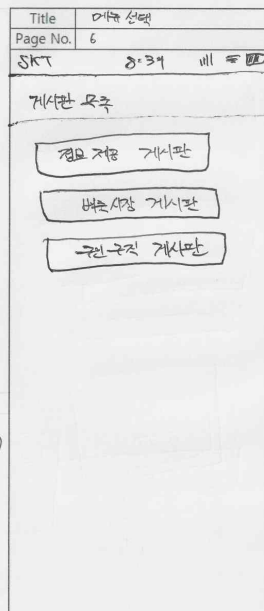 Title 메뉴 선택
Page No. 6
SKT 8:34
게시판 목록
정보 제공 게시판
벼룩시장 게시판
구인구직 게시판